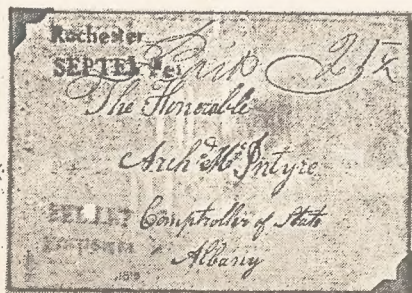 Rochester
SEPTEM
Paid 21½
The Honorable
Archd McIntyre
Comptroller of State
Albany